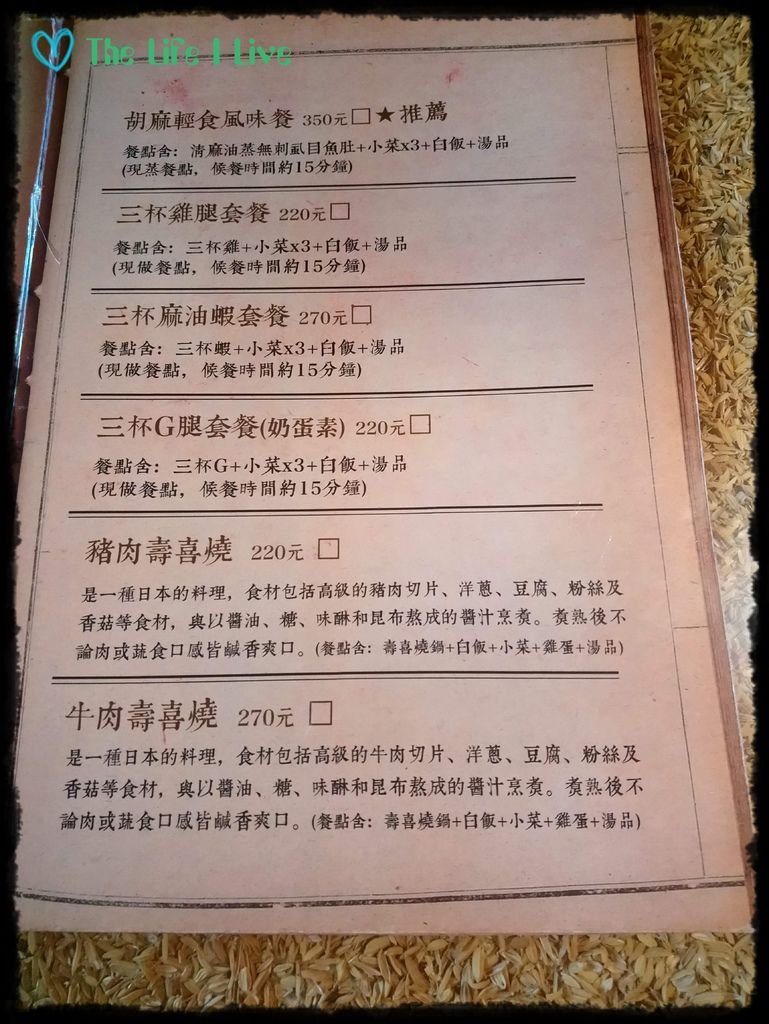 The Life I Live
胡麻輕食風味餐 350元□★推薦
餐點含: 清麻油蒸無刺虱目魚肚+小菜x3+白飯+湯品
(現蒸餐點, 候餐時間約15分鐘)
三杯雞腿套餐 220元□
餐點含: 三杯雞+小菜x3+白飯+湯品
(現做餐點, 候餐時間約15分鐘)
三杯麻油蝦套餐 270元□
餐點含: 三杯蝦+小菜x3+白飯+湯品
(現做餐點, 候餐時間約15分鐘)
三杯G腿套餐(奶蛋素) 220元□
餐點含: 三杯G+小菜x3+白飯+湯品
(現做餐點, 候餐時間約15分鐘)
豬肉壽喜燒 220元 □
是一種日本的料理, 食材包括高級的豬肉切片、洋蔥、豆腐、粉絲及
香菇等食材, 與以醬油、糖、味醂和昆布熬成的醬汁烹煮。煮熟後不
論肉或蔬食口感皆鹹香爽口。(餐點含: 壽喜燒鍋+白飯+小菜+雞蛋+湯品)
牛肉壽喜燒 270元 □
是一種日本的料理, 食材包括高級的牛肉切片、洋蔥、豆腐、粉絲及
香菇等食材, 與以醬油、糖、味醂和昆布熬成的醬汁烹煮。煮熟後不
論肉或蔬食口感皆鹹香爽口。(餐點含: 壽喜燒鍋+白飯+小菜+雞蛋+湯品)